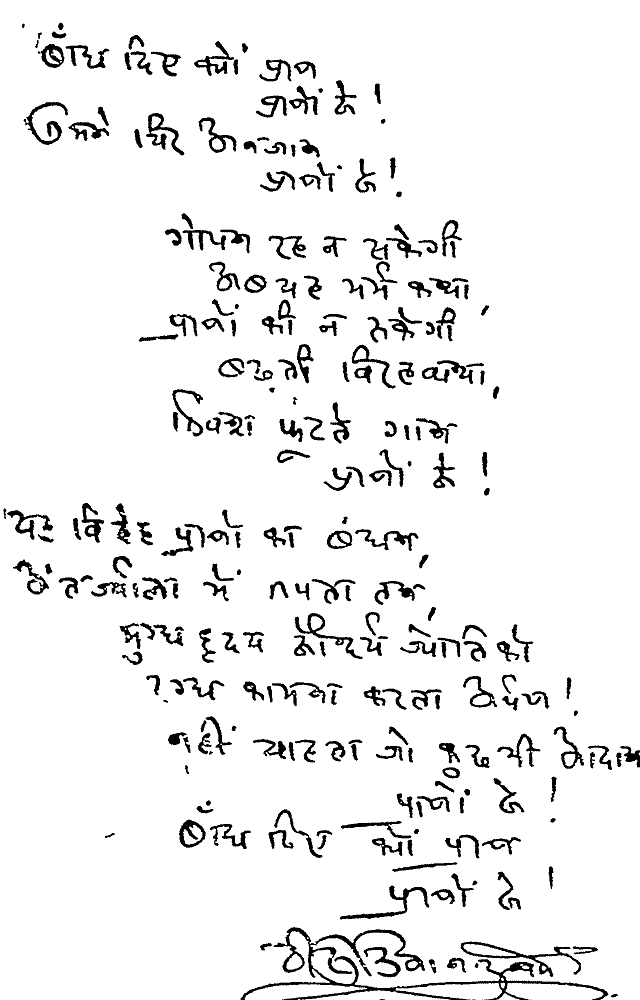 बाँध दिए क्यों प्राण
प्राणों से!
तुमने चिर अनजान
प्राणों से!
गोपन रह न सकेगी
अब यह मर्म कथा,
प्राणों की न रुकेगी
बढ़ती विरह व्यथा,
विवश फूटते गान
प्राणों से!
यह विदेह प्राणों का बंधन,
अंतर्ज्वाला में तपता तन,
मुग्ध हृदय सौन्दर्य ज्योति को
दग्ध कामना करता अर्पण!
नहीं चाहता जो कुछ भी आदान
प्राणों से!
बाँध दिए क्यों प्राण
प्राणों से!